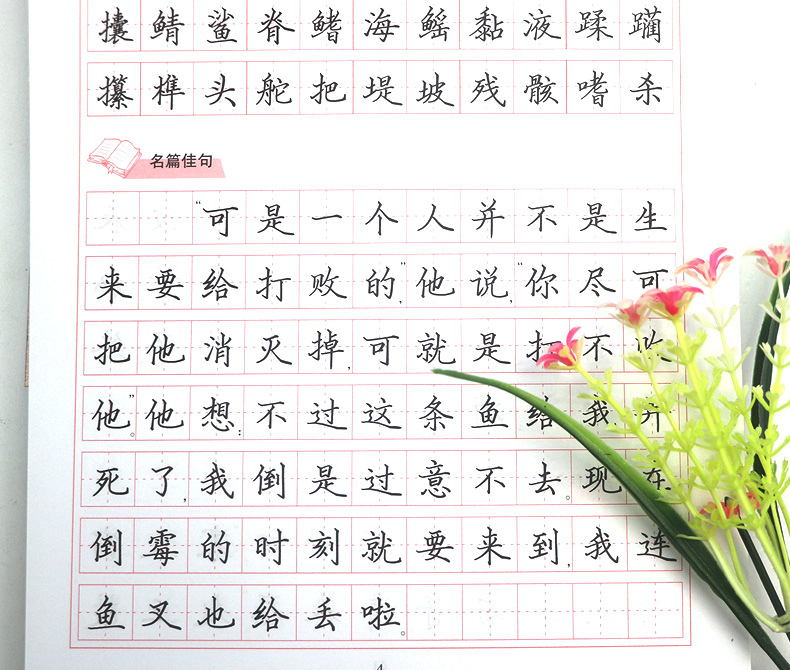 攮鲭鲨脊鳍海鳐黏液蹂躏
攥榫头舵把堤坡残骸嗜杀
名篇佳句
“可是一个人并不是生
来要给打败的，”他说，“你尽可
把他消灭掉，可就是打不败
他。”他想：不过这条鱼给我弄
死了，我倒是过意不去。现在
倒霉的时刻就要来到，我连
鱼叉也给丢啦。